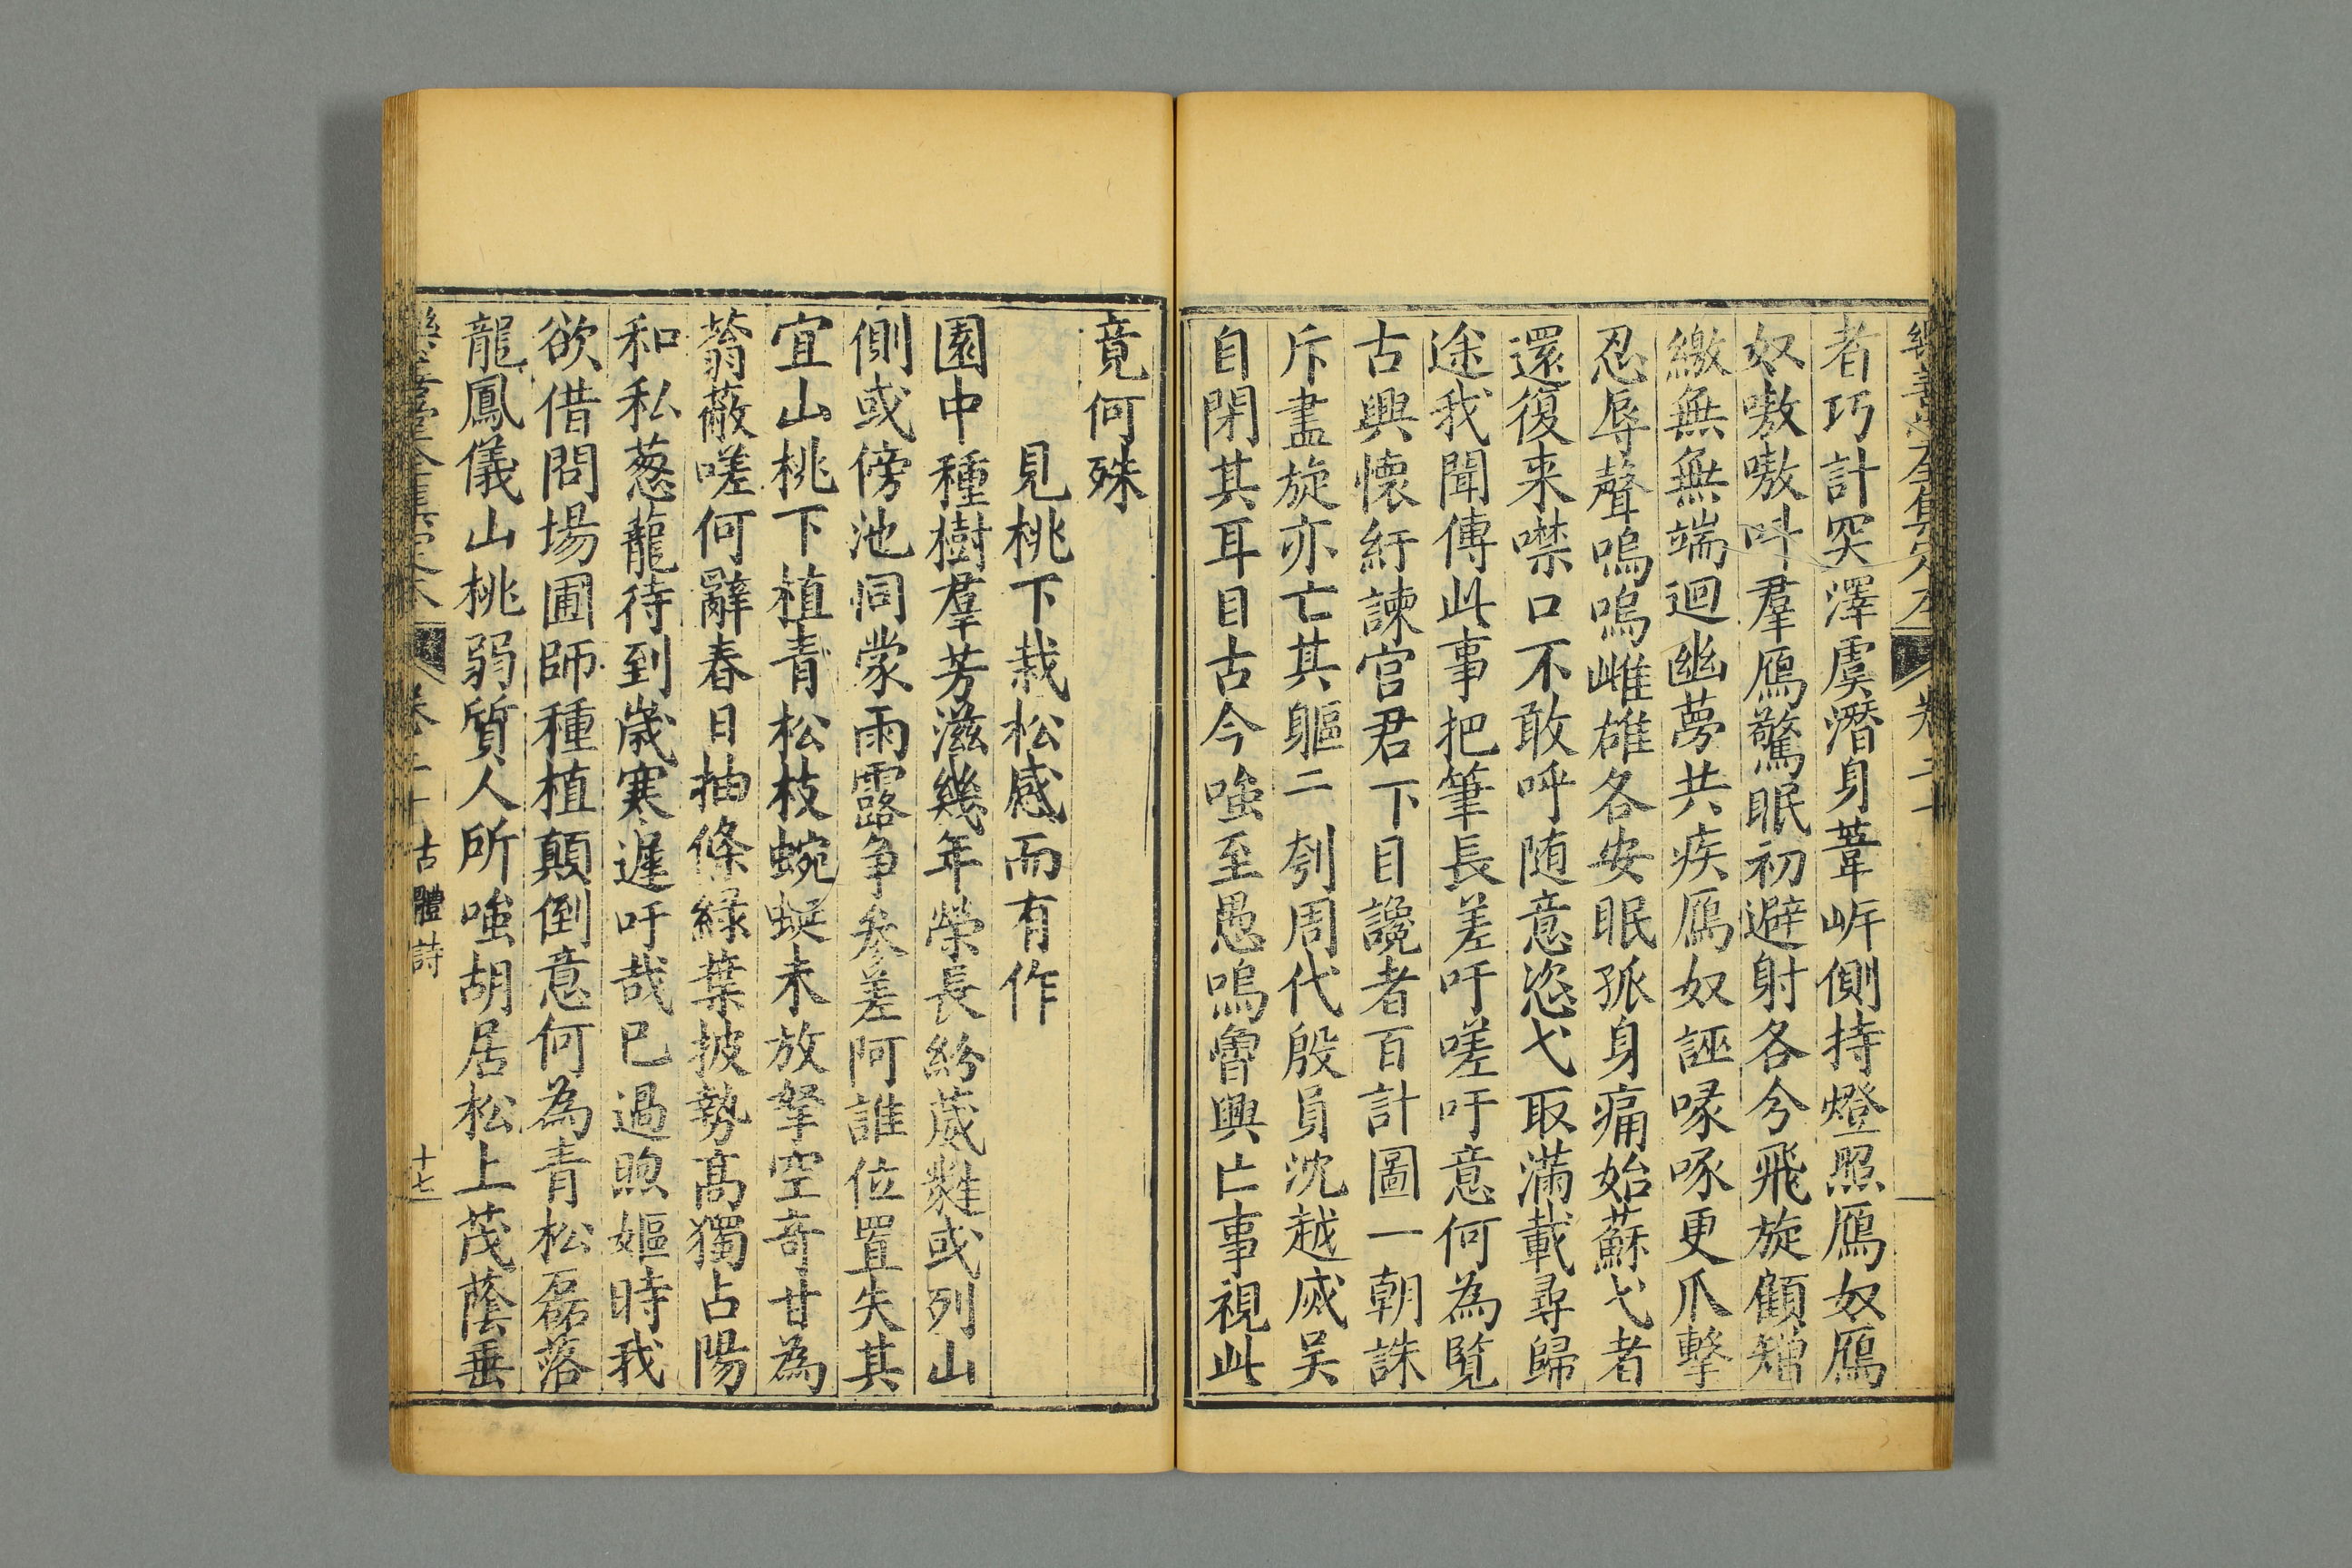 樂善堂全集定本 卷二十
者巧計突澤虞潛身葦岸側持燈照鴈奴鴈
奴嗷嗷呌羣鴈驚眠初避射各分飛旋顧矰
繳無無端迴幽夢共疾鴈奴誣喙啄更爪擊
忍辱聲嗚嗚雌雄各安眠孤身痛始蘇弋者
還復来噤口不敢呼随意恣弋取滿載尋歸
途我聞傳此事把筆長差吁嗟吁意何為覽
古興懷紆諫官君下目讒者百計圖一朝誅
斥盡旋亦亡其軀二刳周代殷員沈越烕吴
自閉其耳目古今嗤至愚嗚魯興亡事視此
竟何殊
見桃下栽松感而有作
園中種樹羣芳滋幾年榮長紛葳蕤或列山
側或傍池同蒙雨露争參差阿誰位置失其
宜山桃下植青松枝蜿蜒未放拏空奇甘為
蓊蔽嗟何辭春日抽條緑葉披勢髙獨占陽
和私葱蘢待到歲寒遲吁哉已過煦嫗時我
欲借問場圃師種植顛倒意何為青松磊落
龍鳳儀山桃弱質人所嗤胡居松上茂蔭垂
樂善堂全集定本 卷二十 古體詩 十七